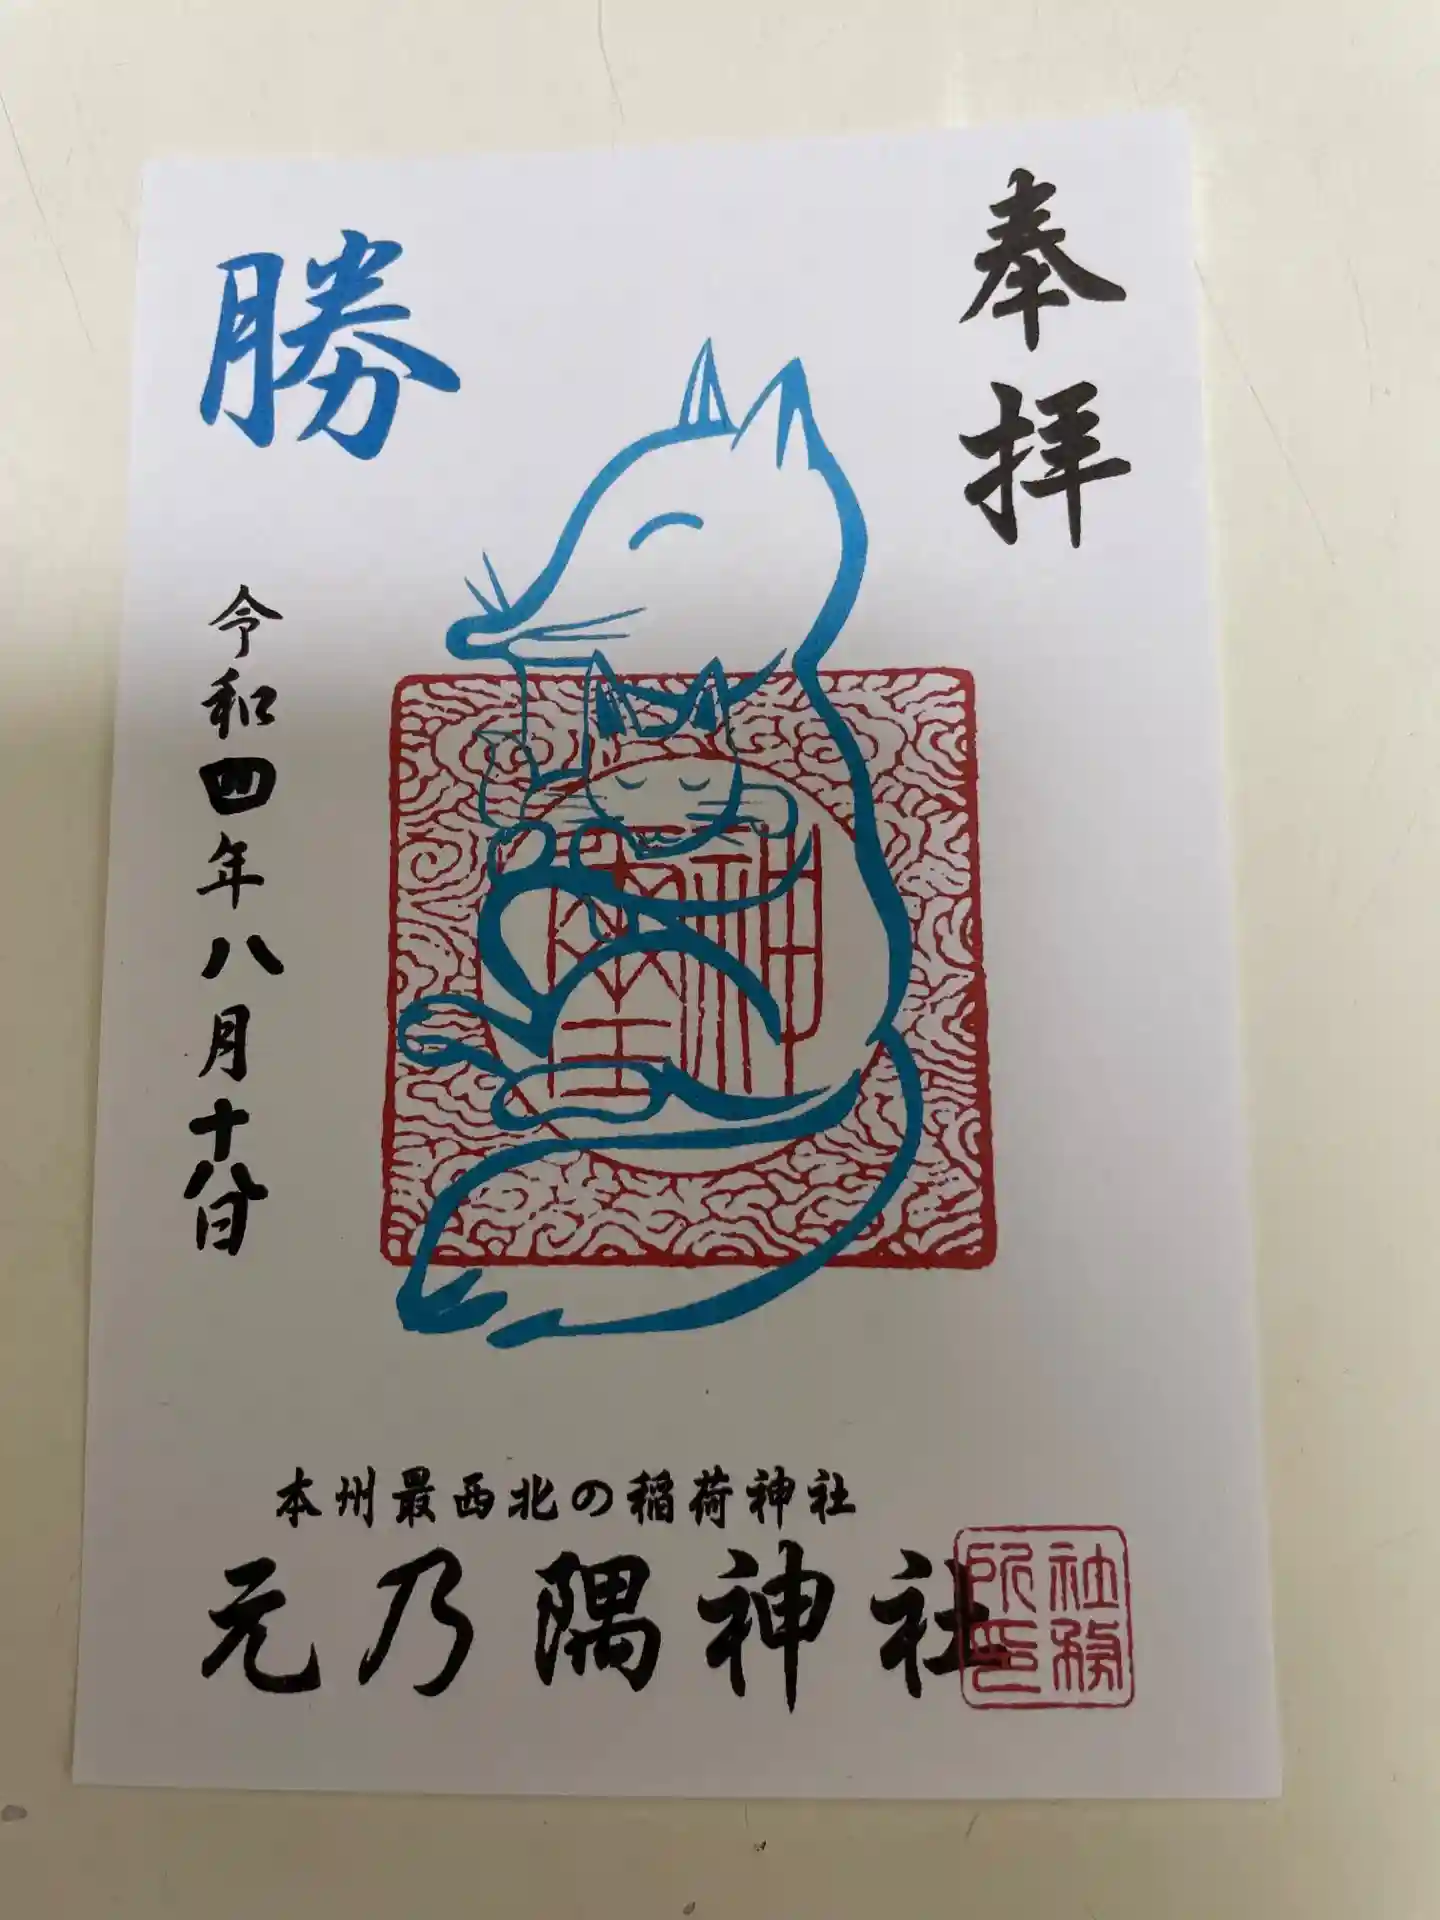 奉拝
勝
令和四年八月十八日
本州最西北の稲荷神社
元乃隅神社
社務
所印